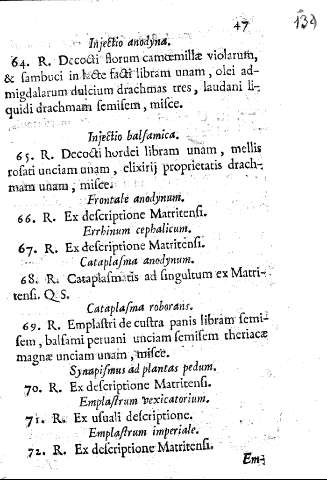 47
139
Injectio anodyna.
64. R. Decocti florum camœmillæ violarum,
& sambuci in lacte facti libram unam, olei ad-
migdalarum dulcium drachmas tres, laudani li-
quidi drachmam semisem, misce.
Injectio balsamica.
65. R. Decocti hordei libram unam, mellis
rosati unciam unam, elixirij proprietatis drach-
mam unam, misce.
Frontale anodynum.
66. R. Ex descriptione Matritensi.
Errhinum cephalicum.
67. R. Ex descriptione Matritensi.
Cataplasma anodynum.
68. R. Cataplasmatis ad singultum ex Matri-
tensi. Q. S.
Cataplasma roborans.
69. R. Emplastri de custra panis libram semi-
sem, balsami peruani unciam semisem theriacæ
magnæ unciam unam, misce.
Synapismus ad plantas pedum.
70. R. Ex descriptione Matritensi.
Emplastrum vexicatorium.
71. R. Ex usuali descriptione.
Emplastrum imperiale.
72. R. Ex descriptione Matritensi.
Em-